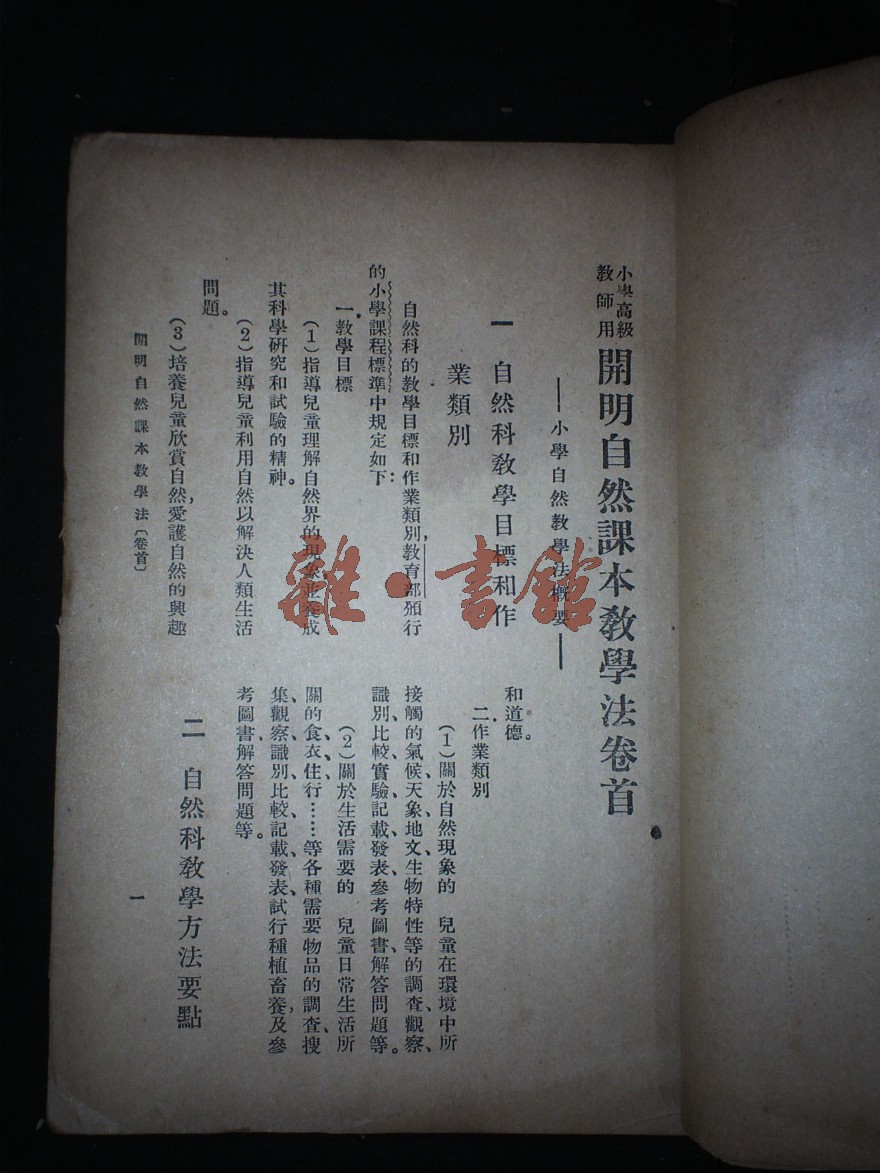 小學高級
教師用
開明自然課本教學法卷首
——小學自然教學法概要——
一 自然科教學目標和作
業類別
自然科的教學目標和作業類別，教育部頒行
的小學課程標準中規定如下：
一．教學目標
（1）指導兒童理解自然界的現象並養成
其科學研究和試驗的精神。
（2）指導兒童利用自然以解決人類生活
問題。
（3）培養兒童欣賞自然，愛護自然的興趣
和道德。
二．作業類別
（1）關於自然現象的 兒童在環境中所
接觸的氣候、天象、地文、生物特性等的調查、觀察、
識別、比較、實驗、記載、發表、參考圖書、解答問題等。
（2）關於生活需要的 兒童日常生活所
關的食、衣、住、行……等各種需要物品的調查、搜
集、觀察、識別、比較、記載、發表、試行種植畜養，及參
考圖書、解答問題等。
二 自然科教學方法要點
開明自然課本教學法〔卷首〕
一
雜·書館